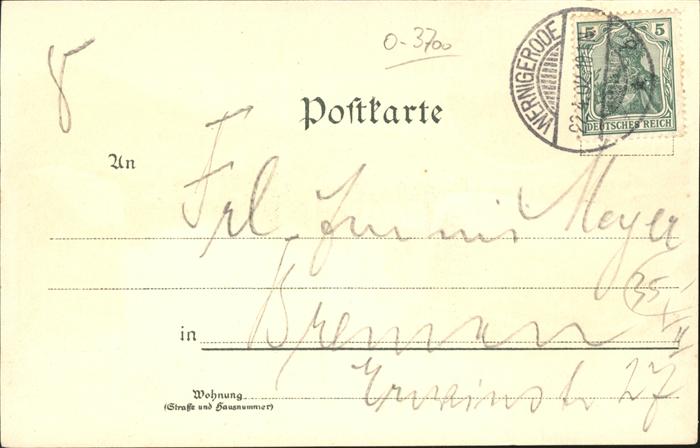 8
0-3700
WERNIGERODE
5 5
DEUTSCHES REICH
Postkarte
An
Frl. Meyer
35
in Bremen
Wohnung 27
(Straße und Hausnummer)